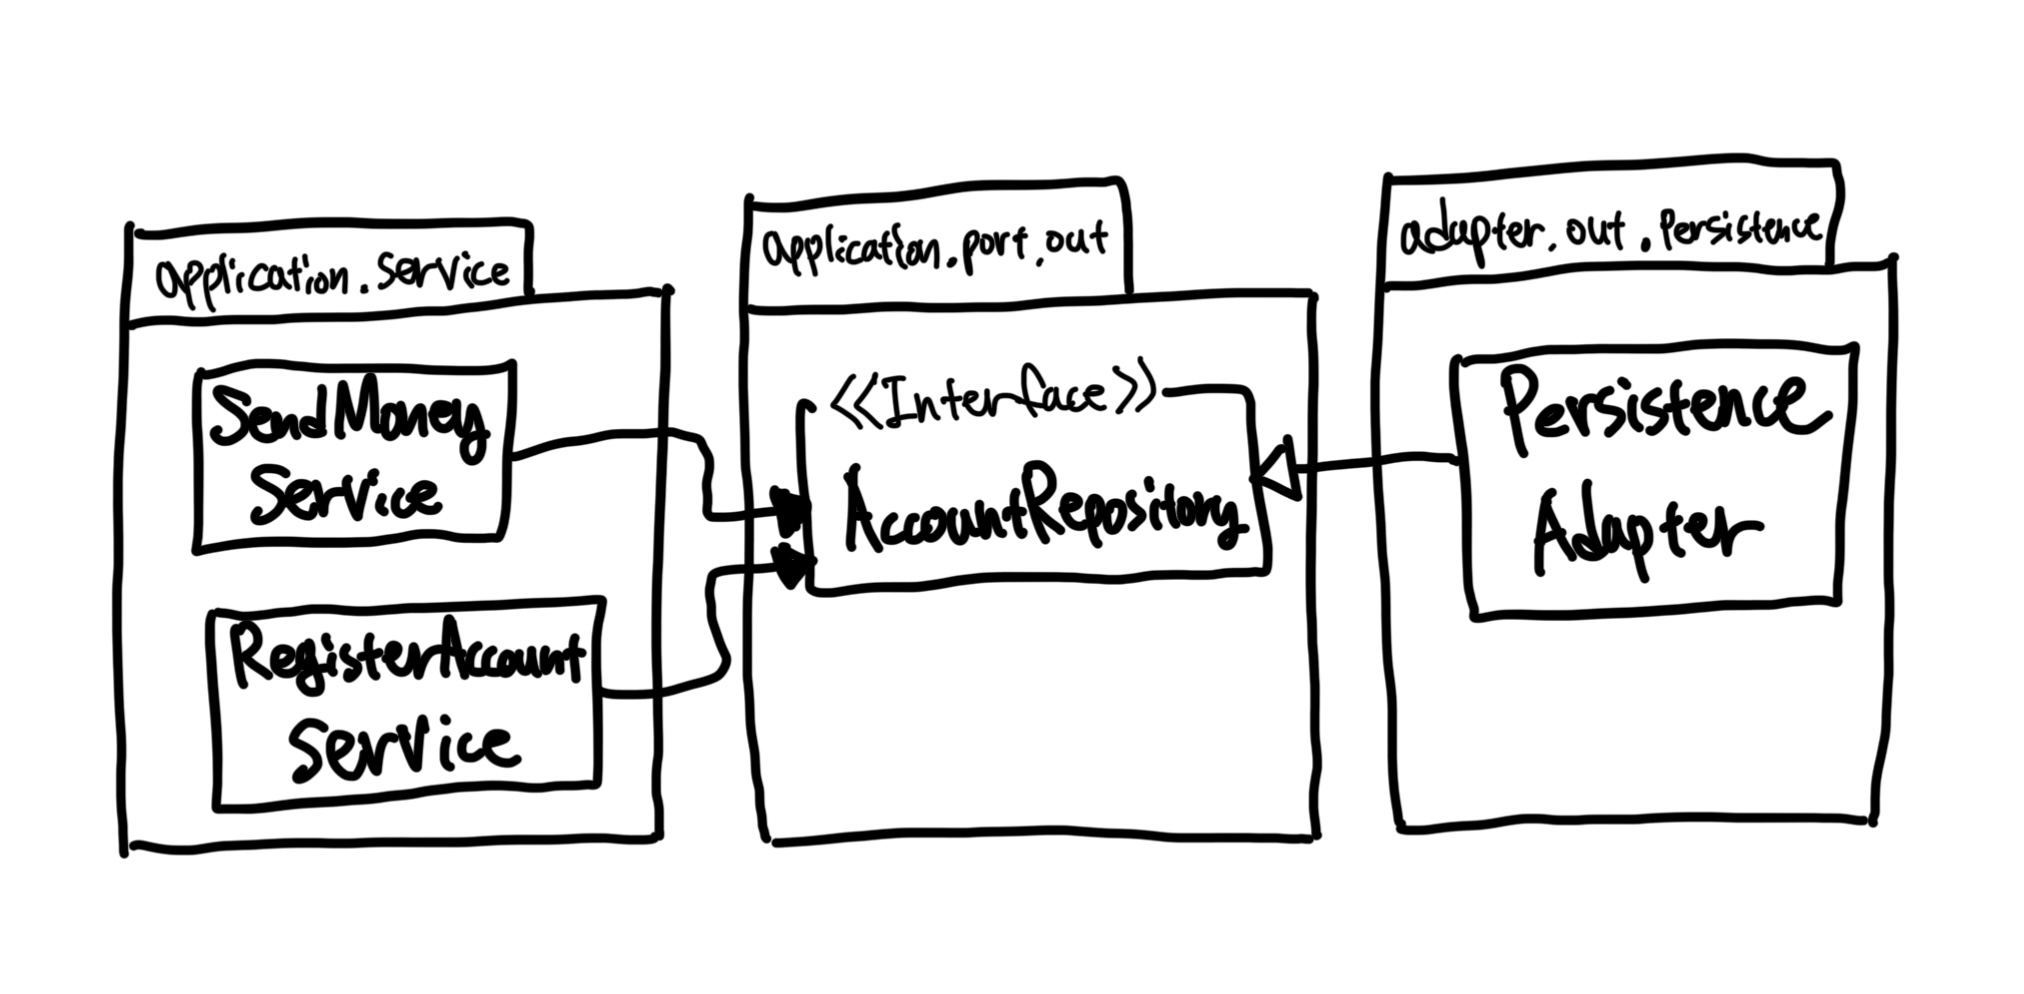 application.service
SendMoney
Service
RegisterAccount
Service
application.port.out
<<Interface>>
AccountRepository
adapter.out.Persistence
Persistence
Adapter